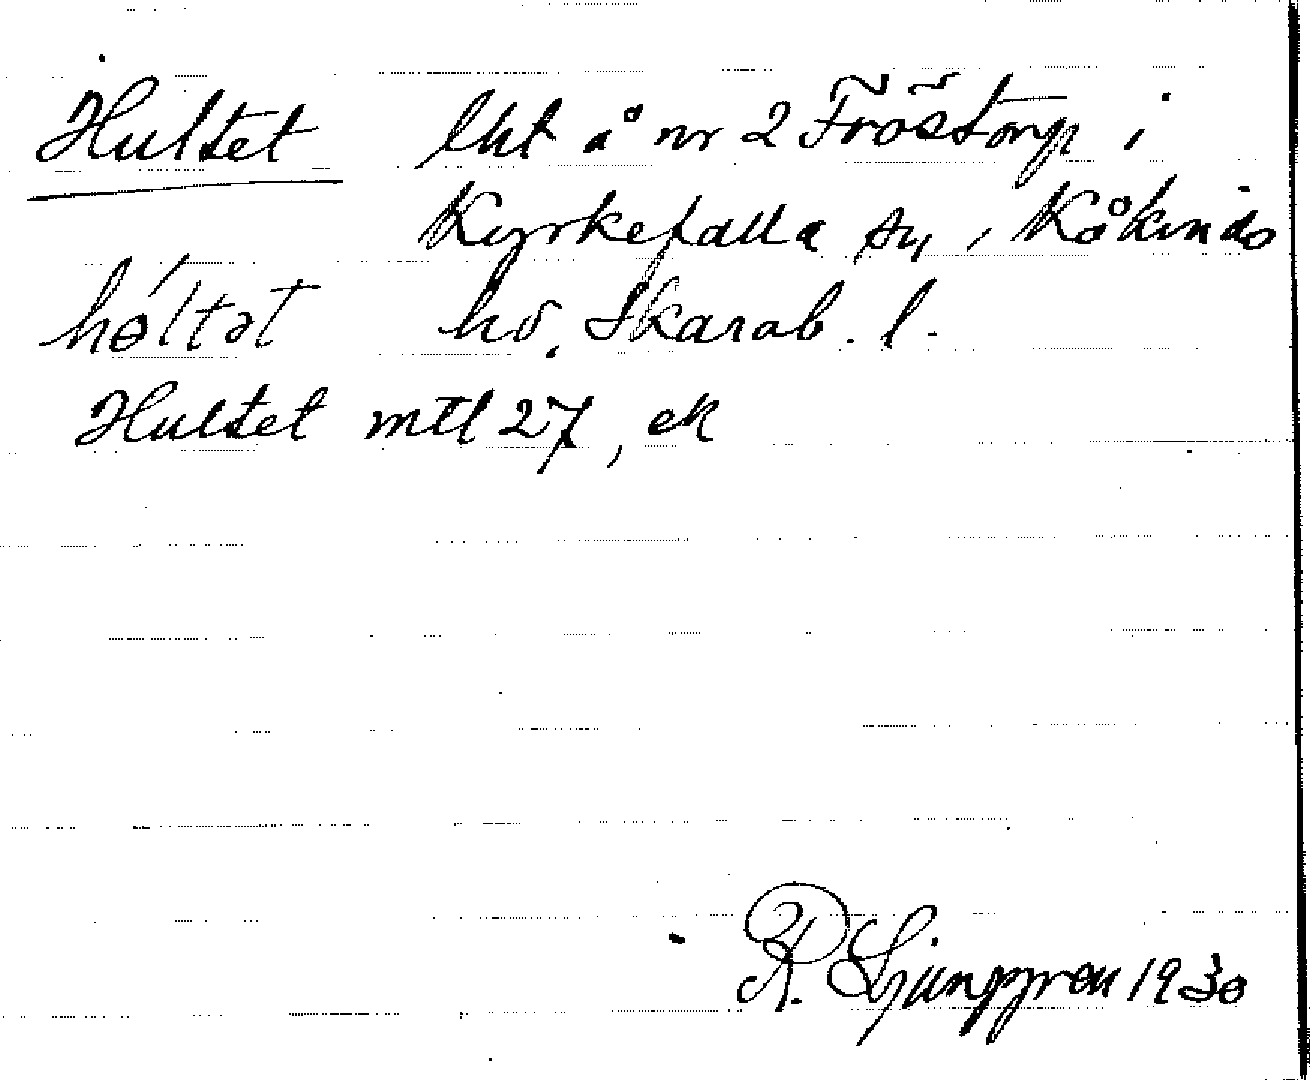 Hultet lht å nr 2 Fröstorp i
Kyrkefalla sn, Kåkinds
hǿltət hd. Skarab. l.
Hultet mtl 27, ek
R. Ljunggren 1930